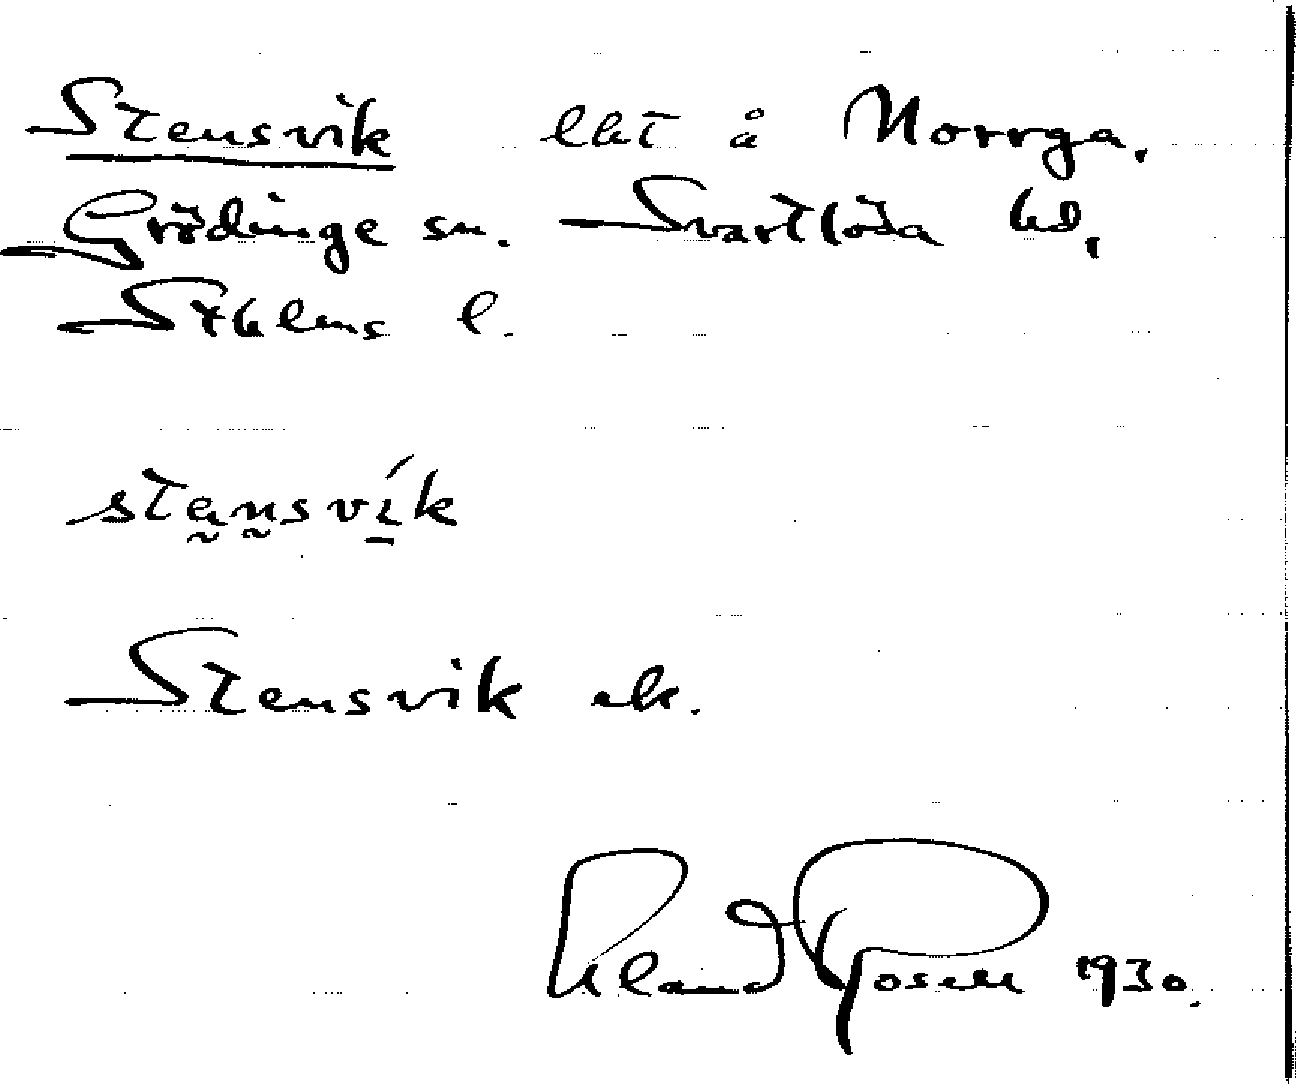 Stensvik lht å Norrga,
Grödinge sn. Svartlösa hd,
Sthlms l.
stensvík
Stensvik ek.
Erland Rosell 1930.